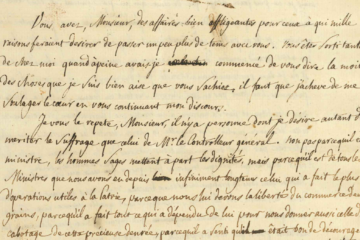 Vous avez, Monsieur, des affaires bien affligeantes pour ceux à qui mille
raisons feraient desirer de passer un peu plus de tems avec vous. Vous êtes sorti tantot
de chez moi quand à peine avais je commencé de vous dire la moitié
des choses que je suis bien aise que vous sachiez, il faut que j'acheve de me
soulager le cœur en vous continuant mon discours.
Je vous le repete, Monsieur, il n'y a personne dont je desire autant de
meriter le suffrage que celui de Mr. le Controlleur général. non pas parcequ'il est
ministre, les hommes sages mettent à part les dignités, mais parcequ'il est de tous les
Ministres que nous avons eu depuis infiniment longtems celui qui a fait le plus
d'operations utiles à la Patrie, parceque nous lui devons la liberté du commerce des
grains, parcequ'il a fait tout ce qui a dépendu de lui pour nous donner aussi celle du
cabotage de cette précieuse denrée, parcequ'il a senti qu'il était bon de décourager